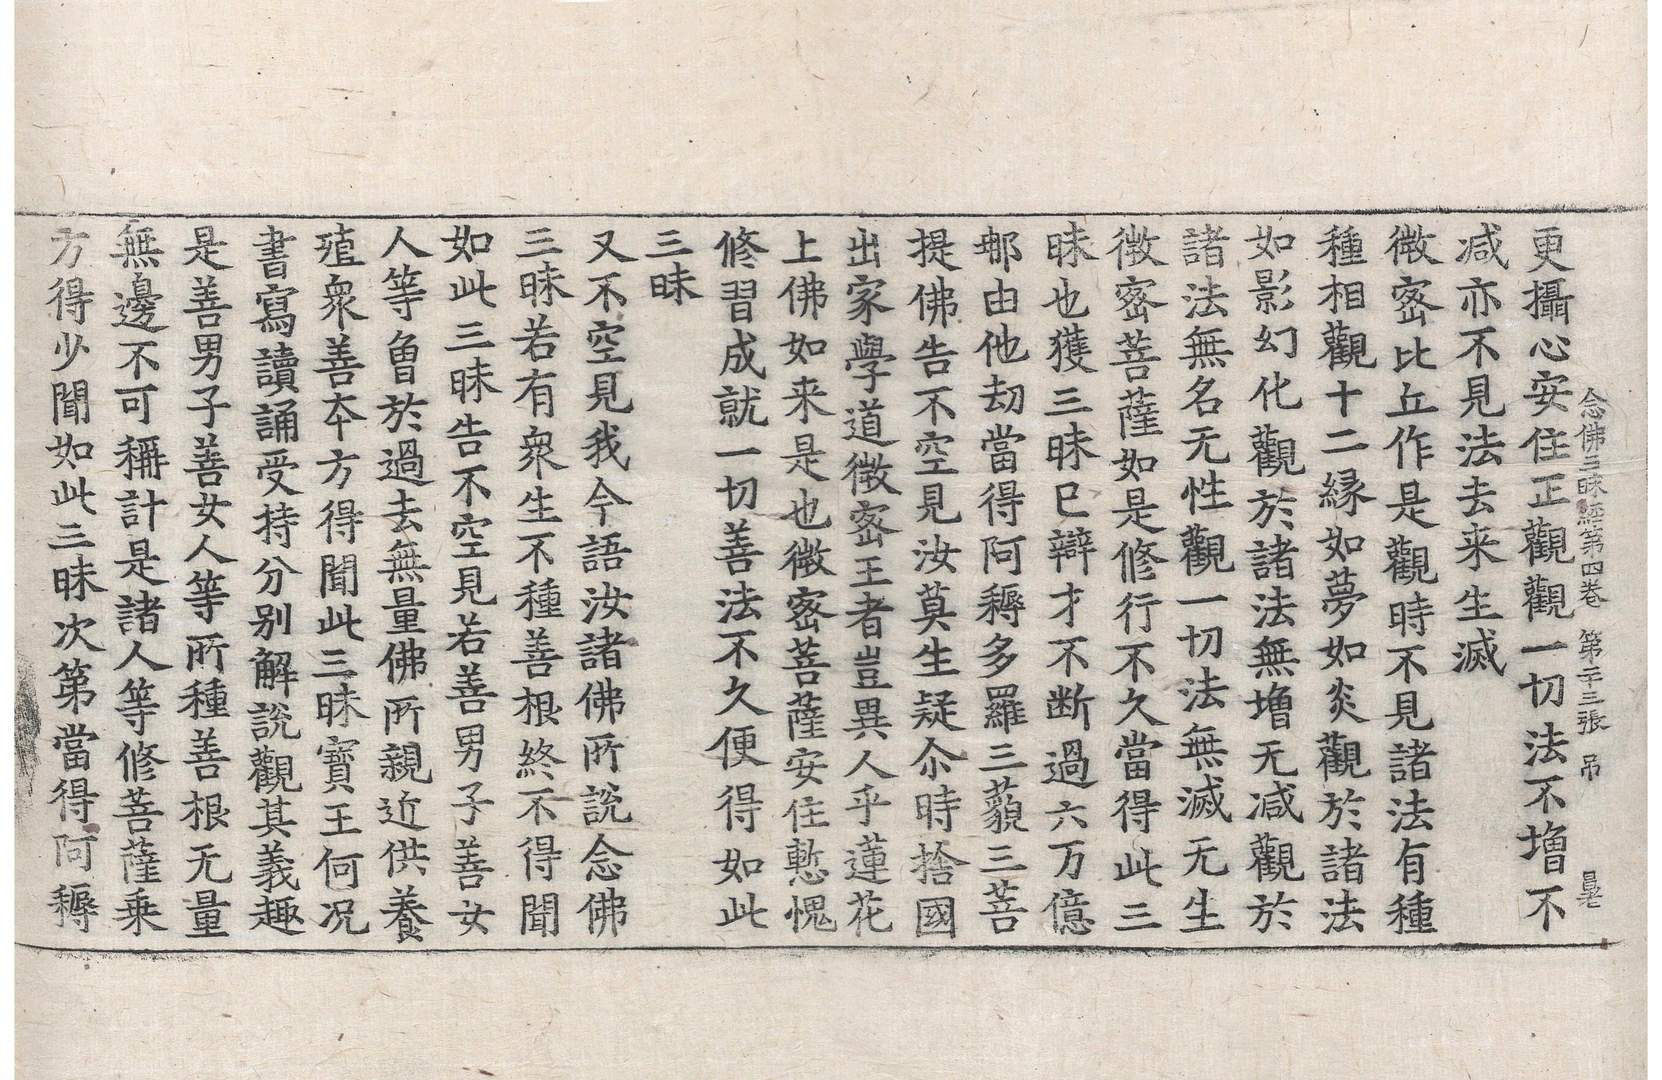 念佛三昧經第四卷 第二十三張 吊
更攝心安住正觀觀一切法不增不
减亦不見法去来生滅
微密比丘作是觀觀時不見諸法有種
種相觀十二緣如夢如炎觀於諸法
如影幻化觀於諸法無増无减觀於
諸法無名无性觀一切法無滅无生
微密菩薩如是修行不久當得此三
昧也獲三昧已辯才不断過六万億
那由他劫當得阿耨多羅三藐三菩
提佛告不空見汝莫生疑尒時捨國
出家學道微密王者豈異人乎蓮花
上佛如来是也微密菩薩安住慙愧
修習成就一切善法不久便得如此
三昧
又不空見我今語汝諸佛所說念佛
三昧若有衆生不種善根終不得聞
如此三昧告不空見若善男子善女
人等曾於過去無量佛所親近供養
殖衆善本方得聞此三昧寶王何况
書寫讀誦受持分别解說觀其義趣
是善男子善女人等所種善根无量
無邊不可稱計是諸人等修菩薩乗
方得少聞如此三昧次第當得阿耨